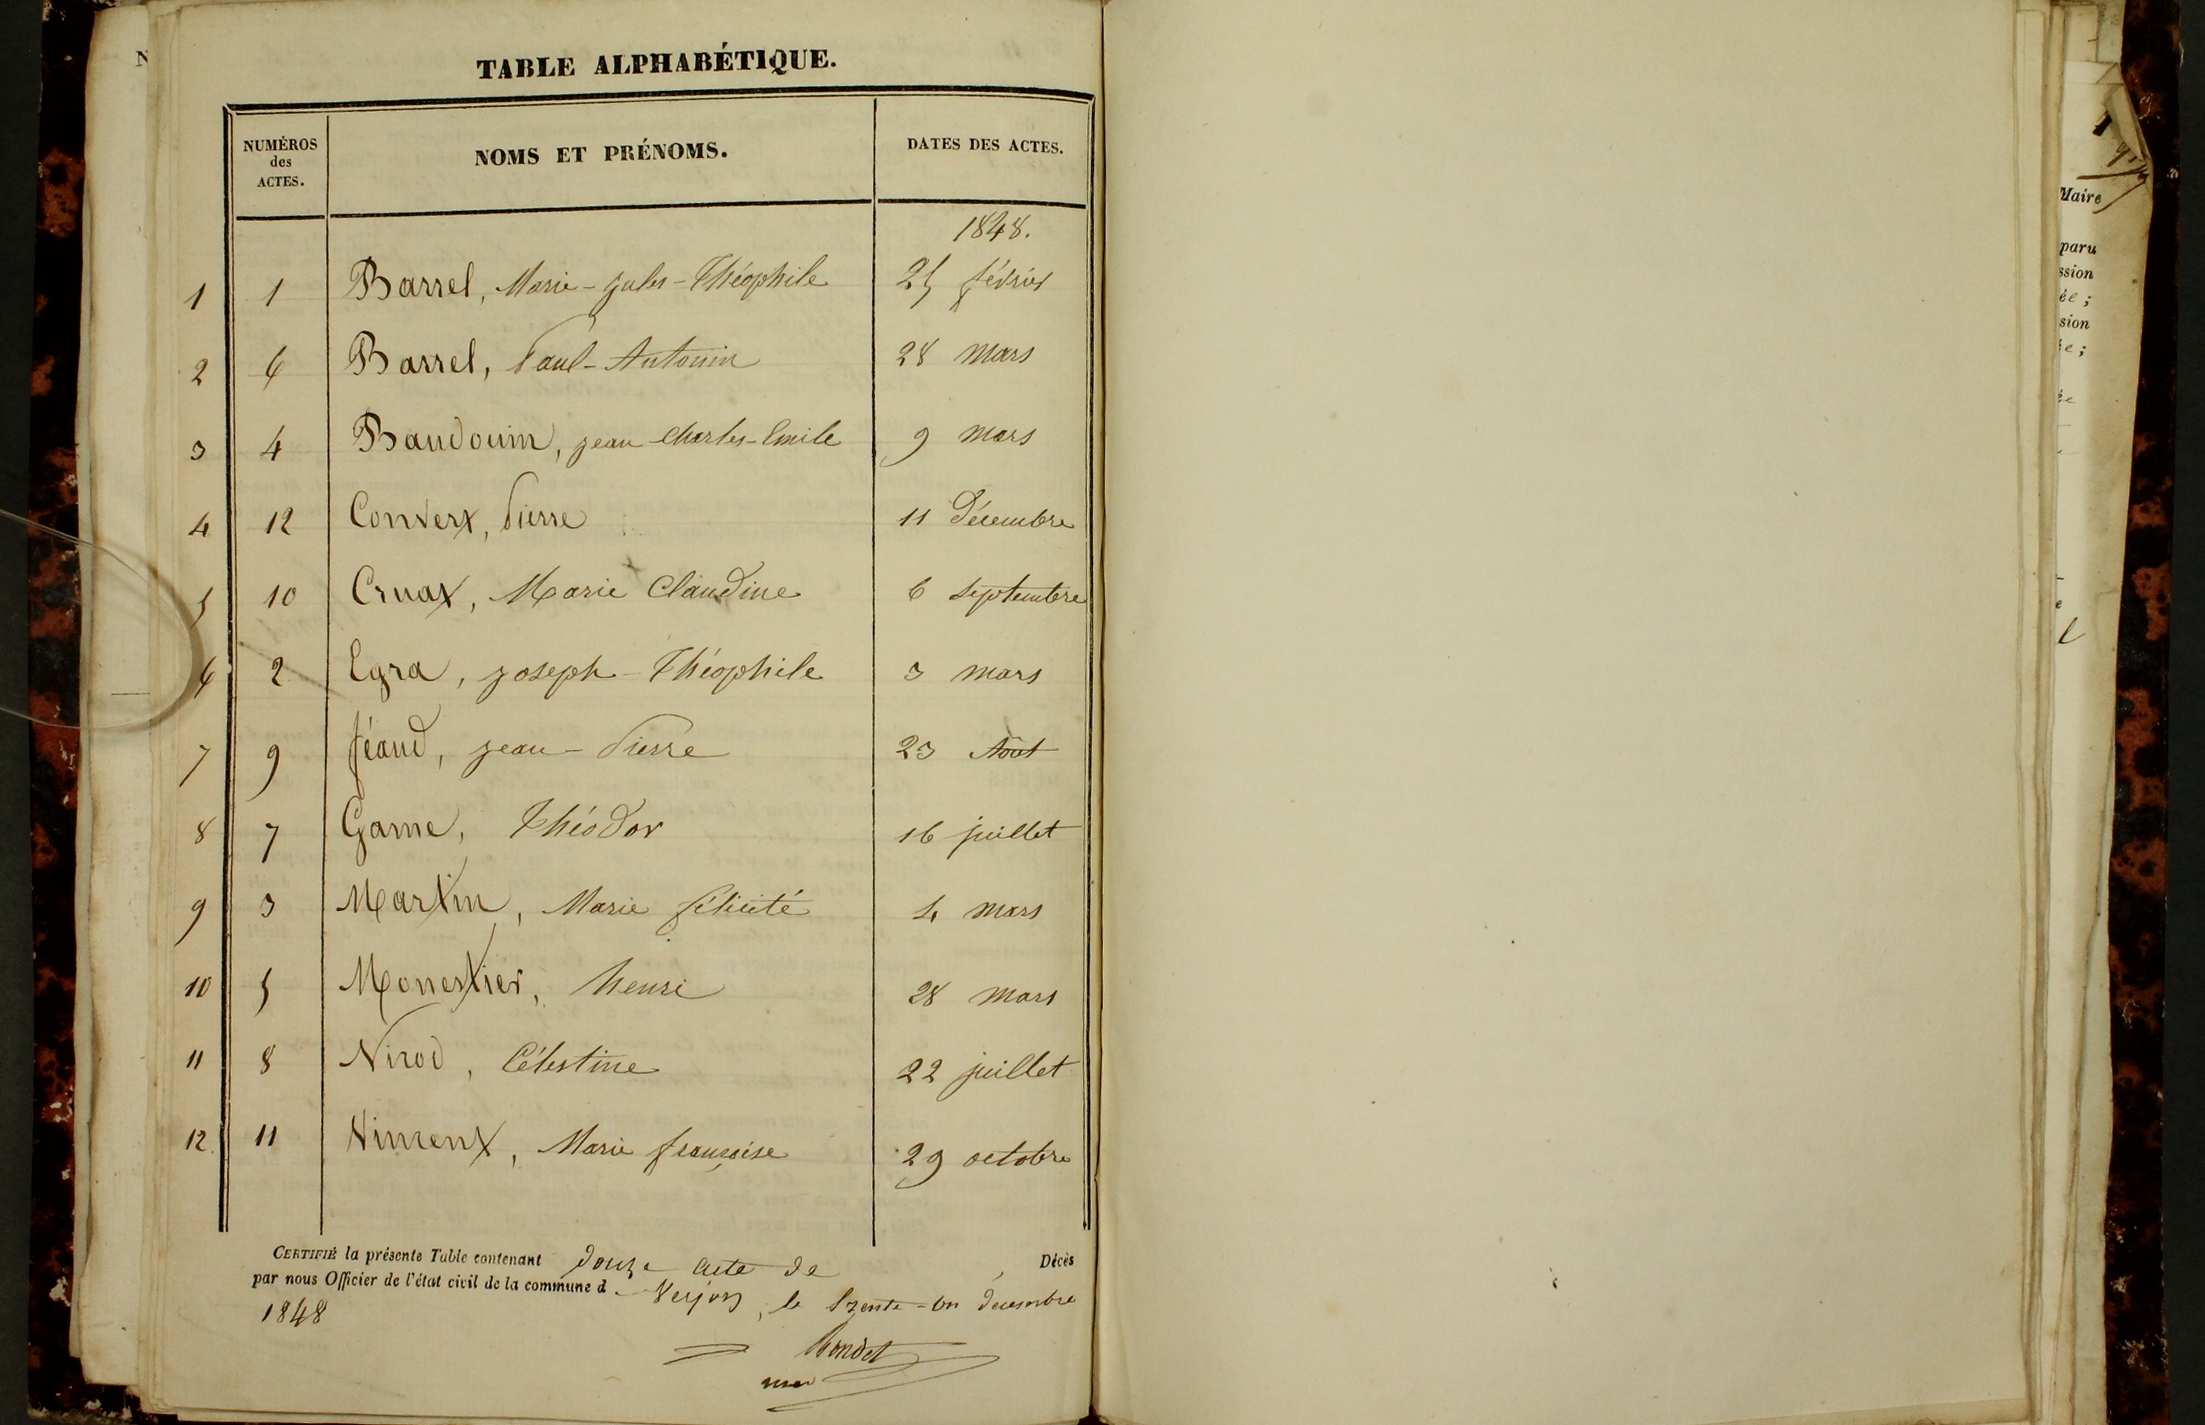 TABLE ALPHABÉTIQUE.
NUMÉROS des ACTES. NOMS ET PRÉNOMS. DATES DES ACTES.
1848.
1 1 Barrel, Marie-Jules-Théophile 25 février
2 6 Barrel, Paul-Antonin 28 mars
3 4 Baudouin, jean-Charles-Emile 9 mars
4 12 Convert, Pierre 11 Décembre
5 10 Cruat, Marie Claudine 6 Septembre
6 2 Egra, joseph-Théophile 3 mars
7 9 féaud, jean-Pierre 23 Août
8 7 Game, Théodor 16 juillet
9 3 Martin, Marie félicité 4 mars
10 5 Monestier, henri 28 mars
11 8 Nirod, Célestine 22 juillet
12 11 Marie françoise 29 octobre
CERTIFIÉ la présente Table contenant douze acte de Décès
par nous Officier de l'état civil de la commune d Verjon, le trente-un décembre
1848
Maire
paru
ssion
ée ;
sion